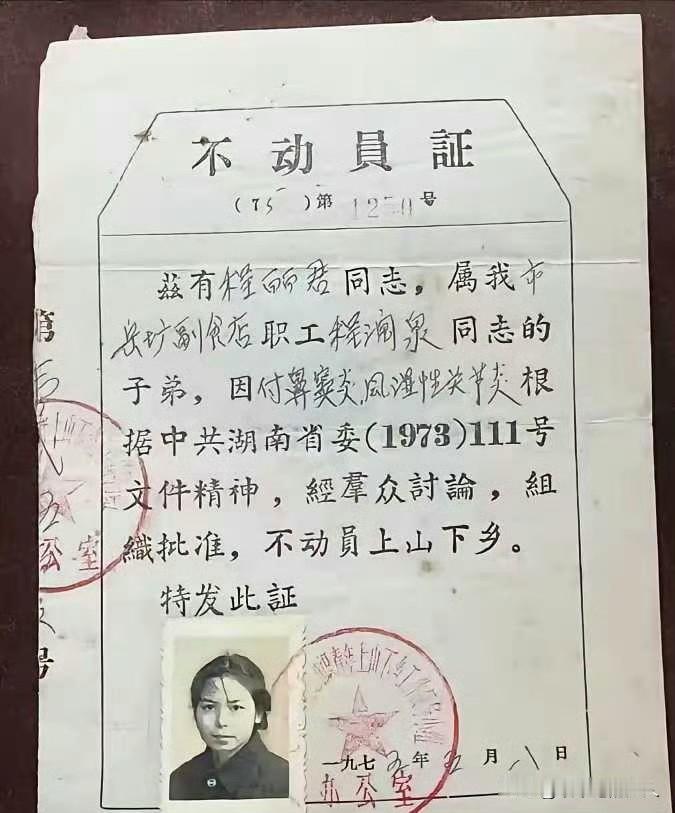 不动員証
(75)第1250号
茲有程丽君同志，属我市
副食店职工程润泉同志的
子弟，因付鼻窦炎風湿性关节炎根
据中共湖南省委(1973)111号
文件精神，經羣众討論，組
織批准，不动員上山下乡。
特发此証
一九七五年五月八日
办公室
第
五
公室
号